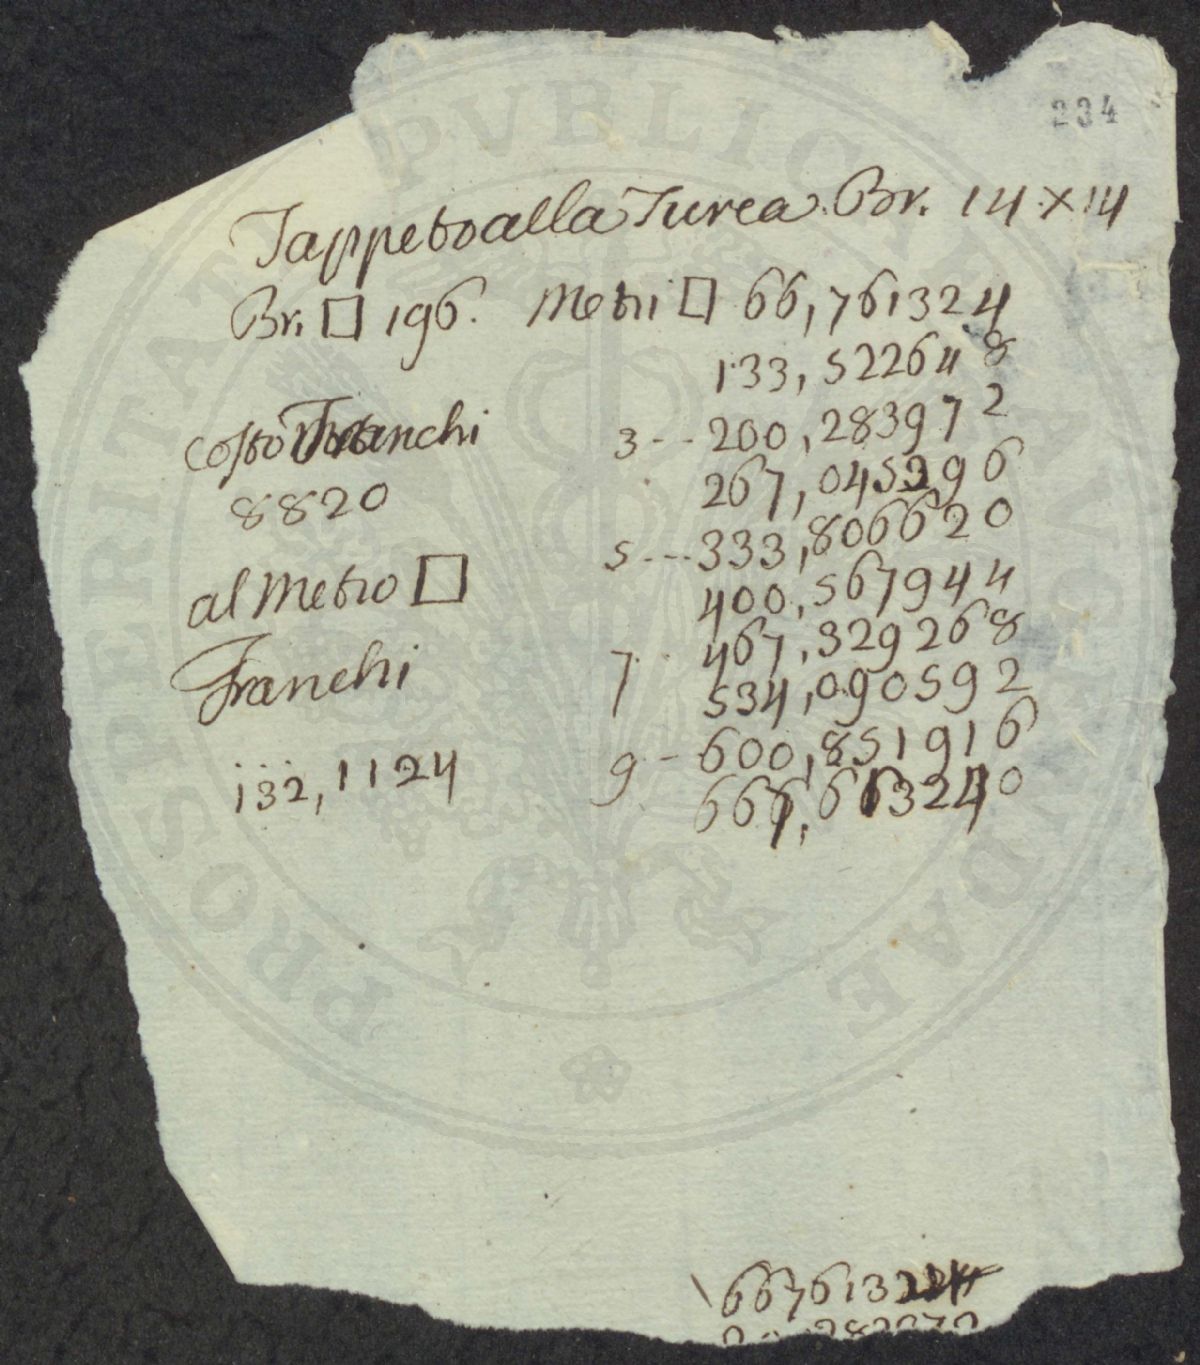 234
Tappeto alla Turca Br. 14 × 14
Br. □ 196. Metri □ 66,761324
133,522648
costò Franchi 3-- 200,283972
267,045296
8820
5--- 333,806620
al Metro □ 400,567944
7. 467,329268
Franchi
534,090592
9- 600,851916
132,1124
667,613240
66761324
PROSPERITATI PVBLICAE AVGENDAE